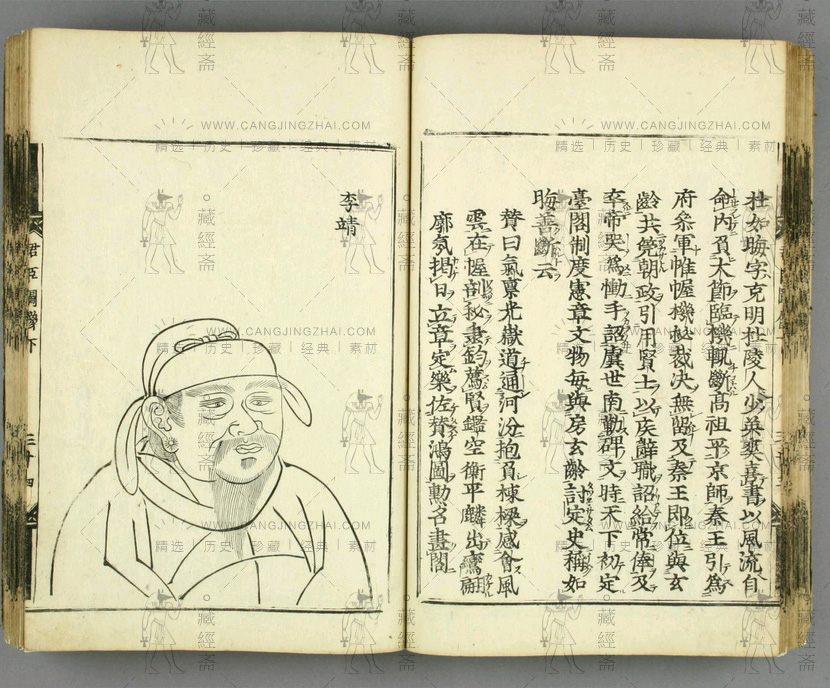 杜如晦字克明杜陵人少英爽喜書以風流自
命內負大節臨機輒斷高祖平京師秦王引為
府叅軍帷幄機秘裁決無留及秦王即位與玄
齡共筦朝政引用賢士以疾辭職詔給常俸及
卒帝哭為慟手詔虞世南勒碑文時天下初定
臺閣制度憲章文物每與房玄齡討定史稱如
晦善斷云
贊曰氣禀光嶽道通河汾抱負棟樑感會風
雲在幄剖秘秉鈞薦賢鑑空衡平麟出鸞翩
廓氛揭日立章定樂佐贊鴻圖勲名畫閣
李靖
君臣圖像下
三十四
WWW.CANGJINGZHAI.COM
精选 | 历史 | 珍藏 | 经典 | 素材
藏經斋